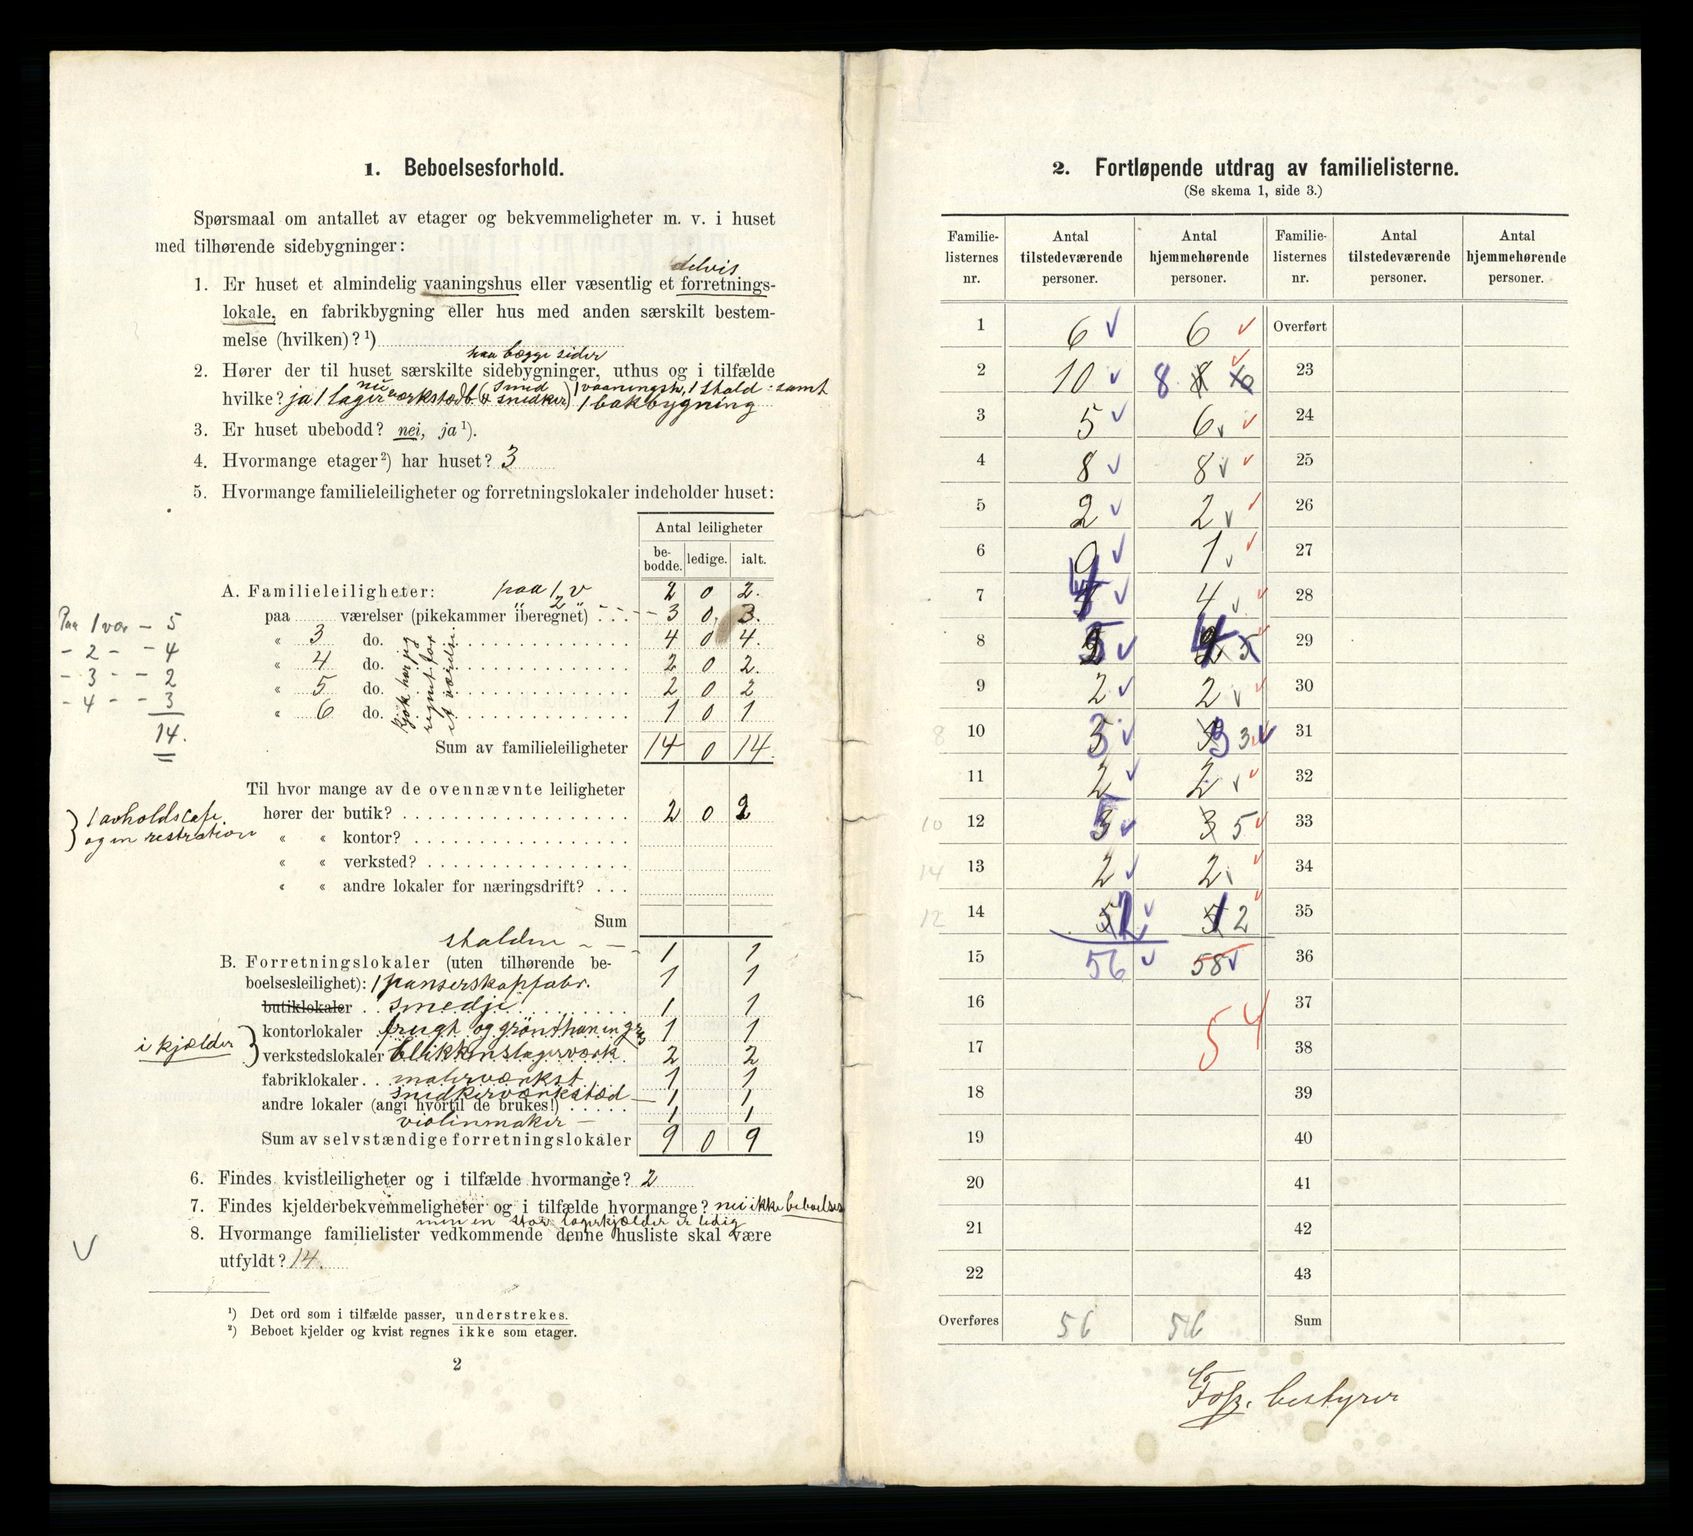 1. Beboelsesforhold.
Spørsmaal om antallet av etager og bekvemmeligheter m. v. i huset
med tilhørende sidebygninger:
delvis
1. Er huset et almindelig vaaningshus eller væsentlig et forretnings-
lokale, en fabrikbygning eller hus med anden særskilt bestem-
melse (hvilken)? ¹)
paa begge sider
2. Hører der til huset særskilte sidebygninger, uthus og i tilfælde
hvilke? ja 1 lager nu værkstedb (smed & snidker) 1 vaaningsh, 1 stald samt
1 bakbygning
3. Er huset ubebodd? nei, ja ¹).
4. Hvormange etager ²) har huset? 3
5. Hvormange familieleiligheter og forretningslokaler indeholder huset:
Antal leiligheter
be-
bodde. ledige. ialt.
A. Familieleiligheter: paa 1 v 2 0 2.
paa 2 værelser (pikekammer iberegnet) . . . 3 0 3.
« 3 do. 4 0 4.
« 4 do. 2 0 2.
« 5 do. 2 0 2
« 6 do. 1 0 1
Kjøk har jeg
regnet for
et værelse
Sum av familieleiligheter 14 0 14.
Paa 1 vær — 5
- 2 - - 4
- 3 - - 2
- 4 - - 3
14.
Til hvor mange av de ovennævnte leiligheter
hører der butik? 2 0 2
« « kontor?
« « verksted?
« « andre lokaler for næringsdrift? . . .
Sum
1 avholdscafe
og en restration
stalden - - 1 1
B. Forretningslokaler (uten tilhørende be-
boelsesleilighet): 1 panserskapfabr. 1 1
butiklokaler . . smedje 1 1
kontorlokaler frugt og grønthan en gros 1 1
verkstedslokaler blikkenslagerværk. 2 2
fabriklokaler . . malerværkst. 1 1
snidkerværksted — 1 1
andre lokaler (angi hvortil de brukes!)
violinmaker — 1 1
Sum av selvstændige forretningslokaler 9 0 9
i kjælder
6. Findes kvistleiligheter og i tilfælde hvormange? 2
7. Findes kjelderbekvemmeligheter og i tilfælde hvormange? nei ikke beboelses
men en stor lagerkjælder er ledig
8. Hvormange familielister vedkommende denne husliste skal være
utfyldt? 14.
¹) Det ord som i tilfælde passer, understrekes.
²) Beboet kjelder og kvist regnes ikke som etager.
2
2. Fortløpende utdrag av familielisterne.
(Se skema 1, side 3.)
Familie-
listernes
nr.
Antal
tilstedeværende
personer.
Antal
hjemmehørende
personer.
Familie-
listernes
nr.
Antal
tilstedeværende
personer.
Antal
hjemmehørende
personer.
1 6 6 Overført
2 10 8 23
3 5 6 24
4 8 8 25
5 2 2 26
6 1 27
7 4 4 28
8 5 4 29
9 2 2 30
8 10 3 3 3 31
11 2 2 32
10 12 5 3 5 33
14 13 2 2 34
12 14 5 2 5 2 35
15 56 58 36
16 37
54
17 38
18 39
19 40
20 41
21 42
22 43
Overføres 56 56 Sum
Foss. bestyrer